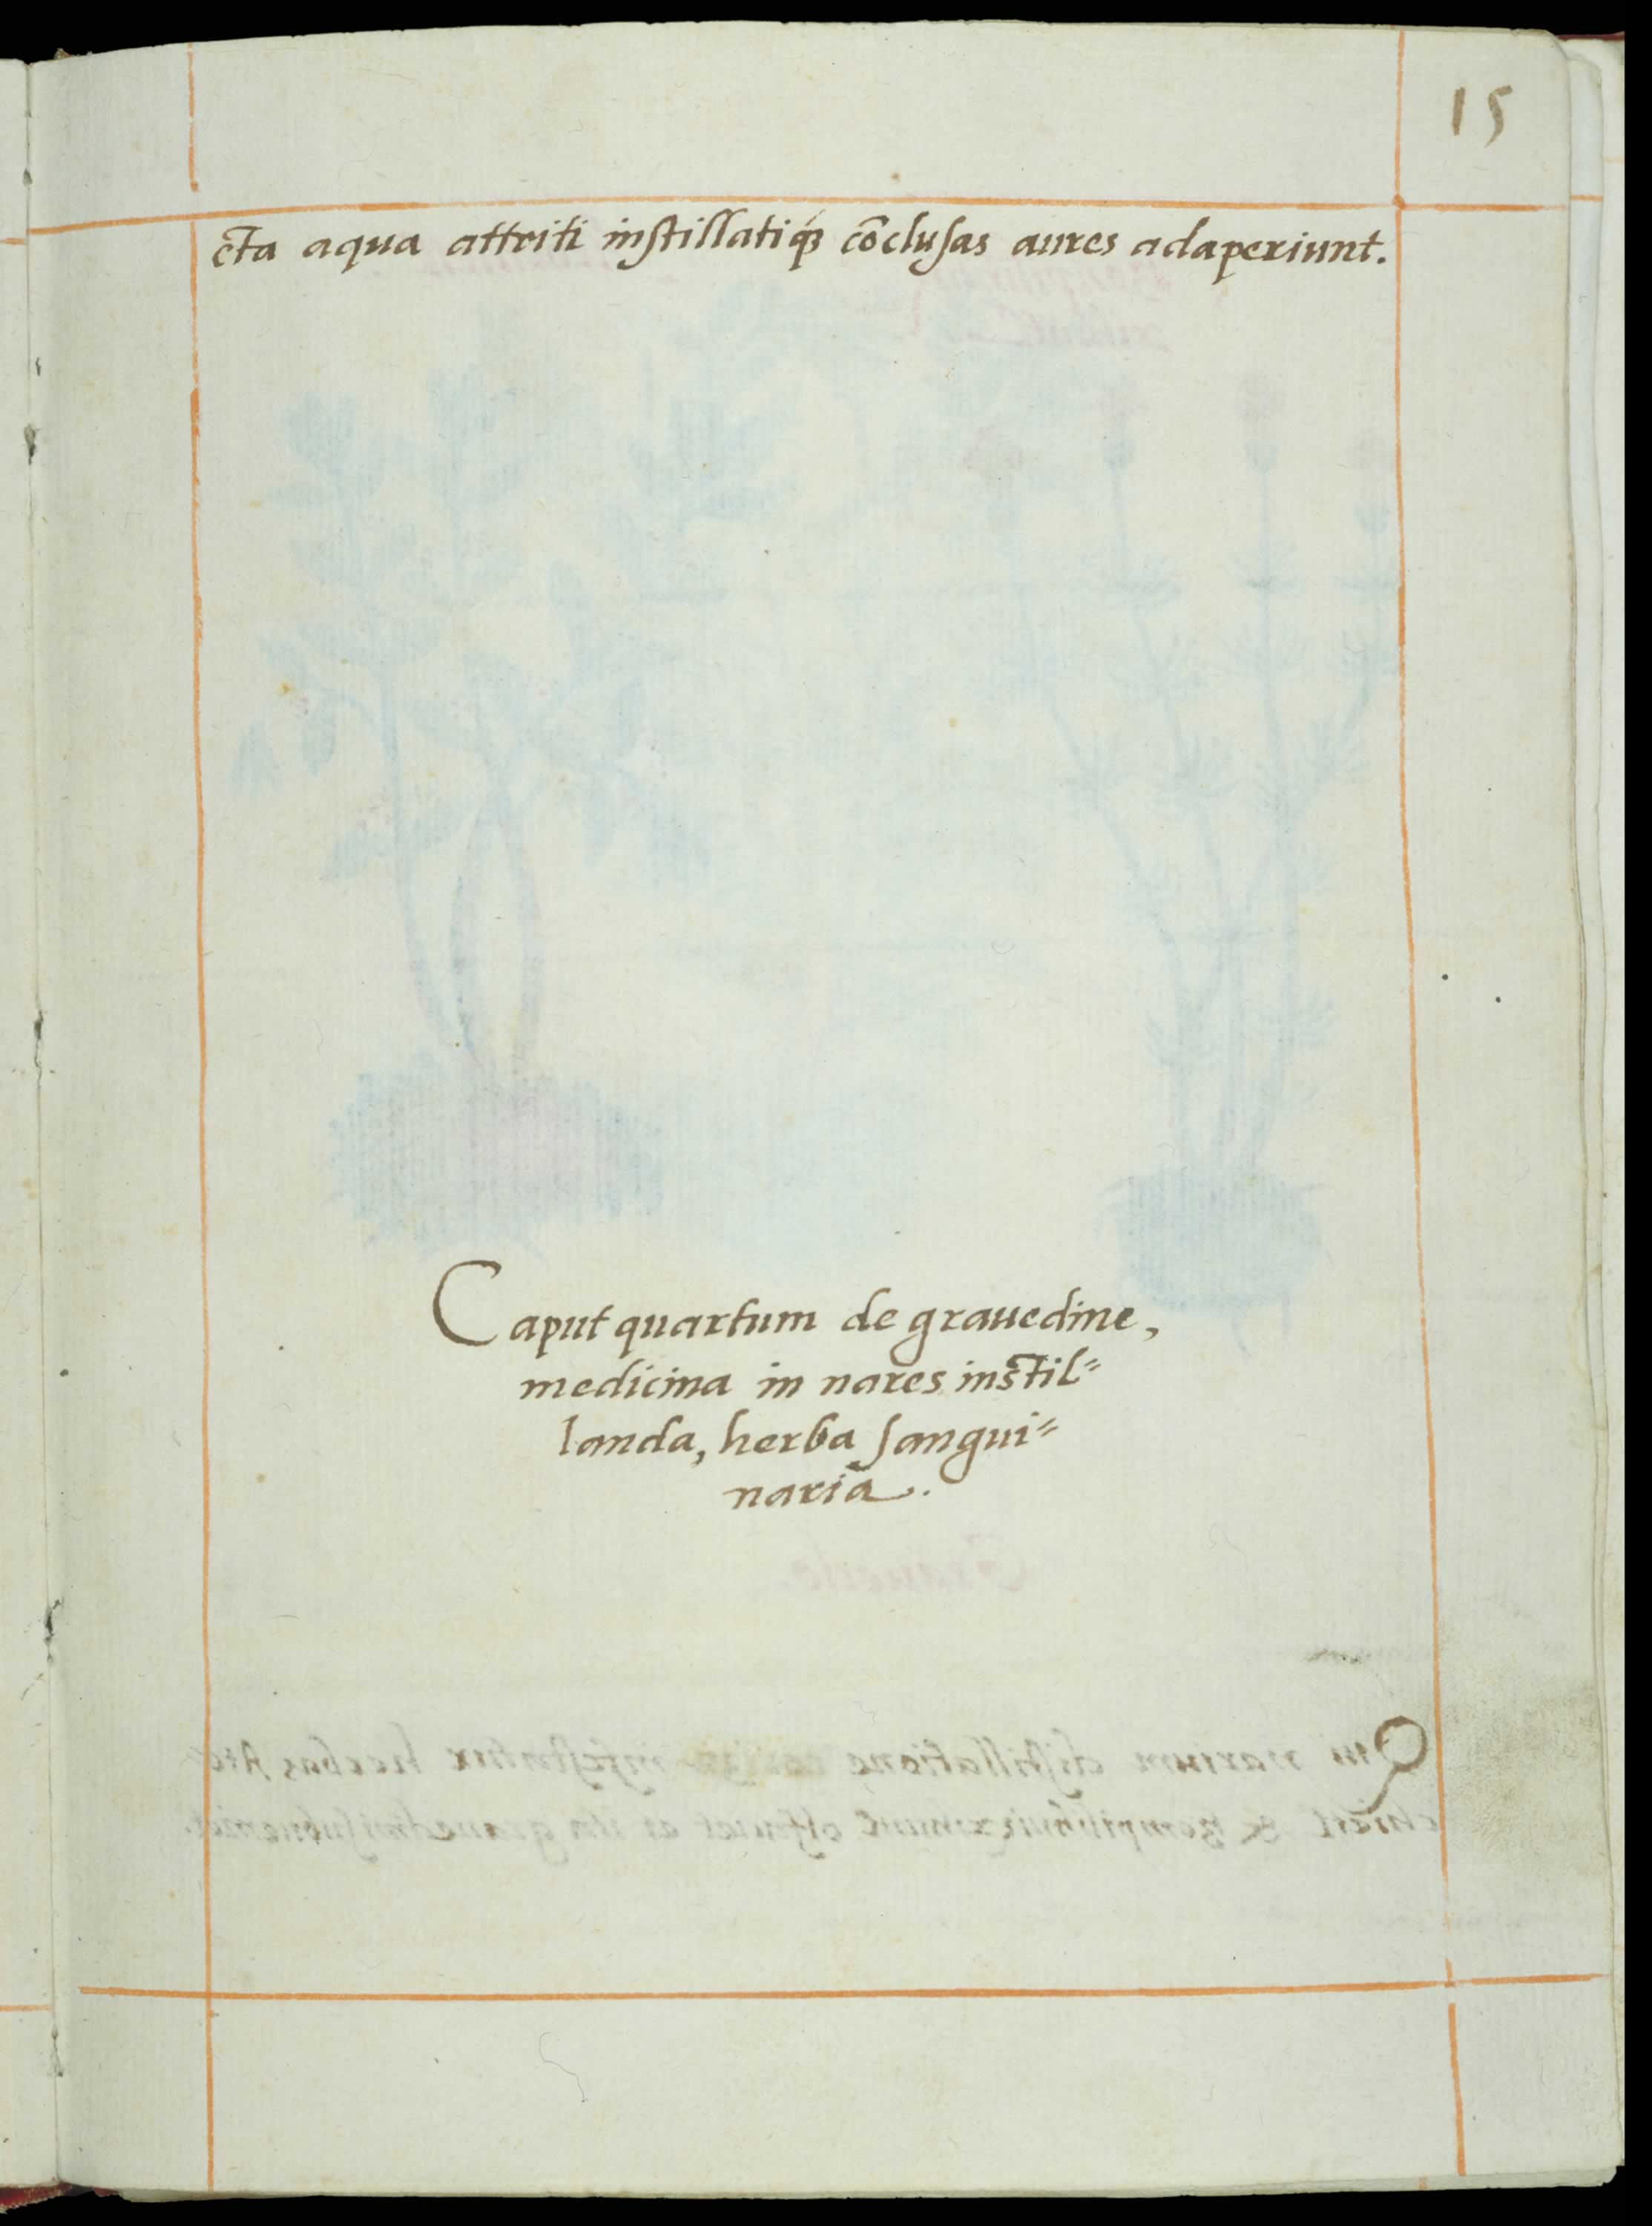 15
cta aqua attriti instillatiq́ꝫ cōclusas aures adaperiunt.
Caput quartum de grauedine,
medicina in nares instil⸗
landa, herba sangui⸗
naria.